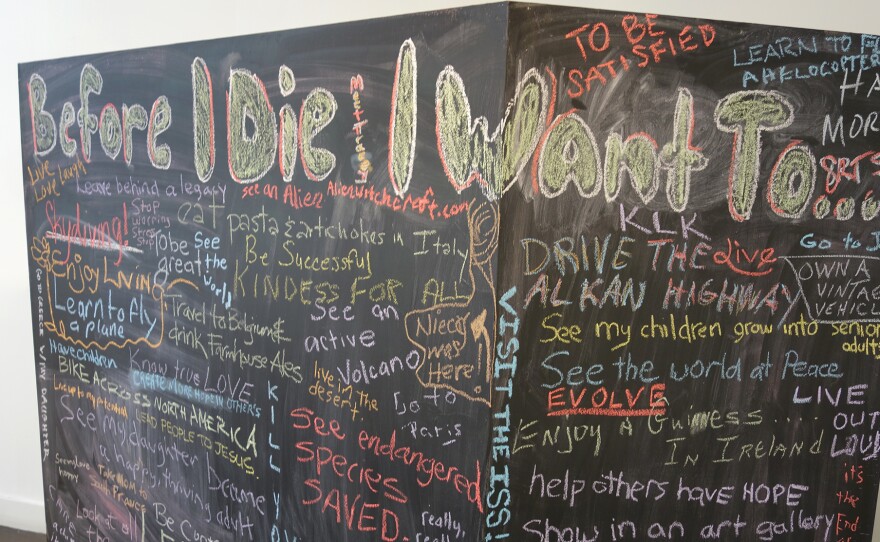 Before I Die I Want To...
Live
Love Laugh
Leave behind a legacy
see an Alien Alienwitchcraft.com
Skydiving!
Stop
worrying
stress
stop
eat
pasta & artichokes in Italy
To be
great
See
the
world
Be Successful
KINDESS FOR ALL
Enjoy Living
Learn to fly
a plane
Travel to Belgium &
drink Farmhouse Ales
See an
active
Volcano
Nieco
was
Here!
Have children
BIKE ACROSS NORTH AMERICA
Know true LOVE
CREATE MORE HOPE IN OTHERS
live in the
desert.
Go to
Paris
Live up to my potential
LEAD PEOPLE TO JESUS.
See my daughter become
a happy, thriving adult
KILL
See endangered
Species
SAVED.
really,
Take Mom to
South France
Look at all
the
VISIT THE ISS!
TO BE
SATISFIED
LEARN TO
A HELOCOPTER
HA
MOR
KLK
DRIVE THE
ALKAN HIGHWAY
Live
Go to
OWN A
VINTAGE
VEHICLE
See my children grow into senior
adults
See the world at Peace
EVOLVE
LIVE
OUT
LOUD
ENJOY A GUINNESS.....
IN IRELAND
help others have HOPE
Show in an art gallery
it's
the
End